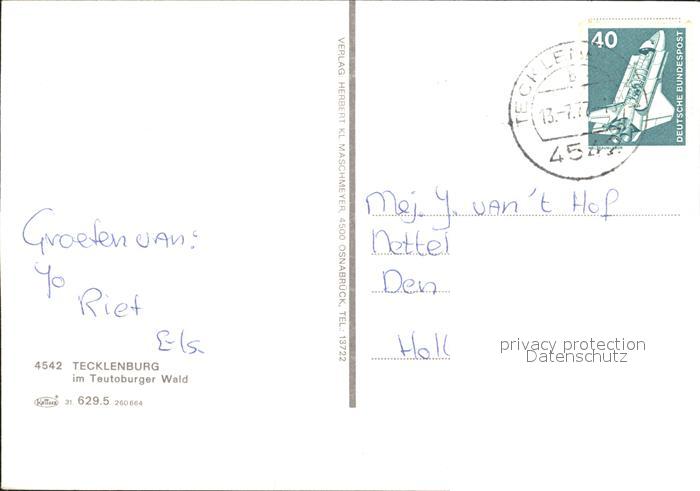 40
DEUTSCHE BUNDESPOST
13.-7.77
454
VERLAG: HERBERT KL. MASCHMEYER, 4500 OSNABRÜCK, TEL.: 13722
Mej. Y. van 't Hof
Nettel
Den
Holl
Groeten van:
Yo
Riet
Els.
privacy protection
Datenschutz
4542 TECKLENBURG
im Teutoburger Wald
31. 629.5 260664